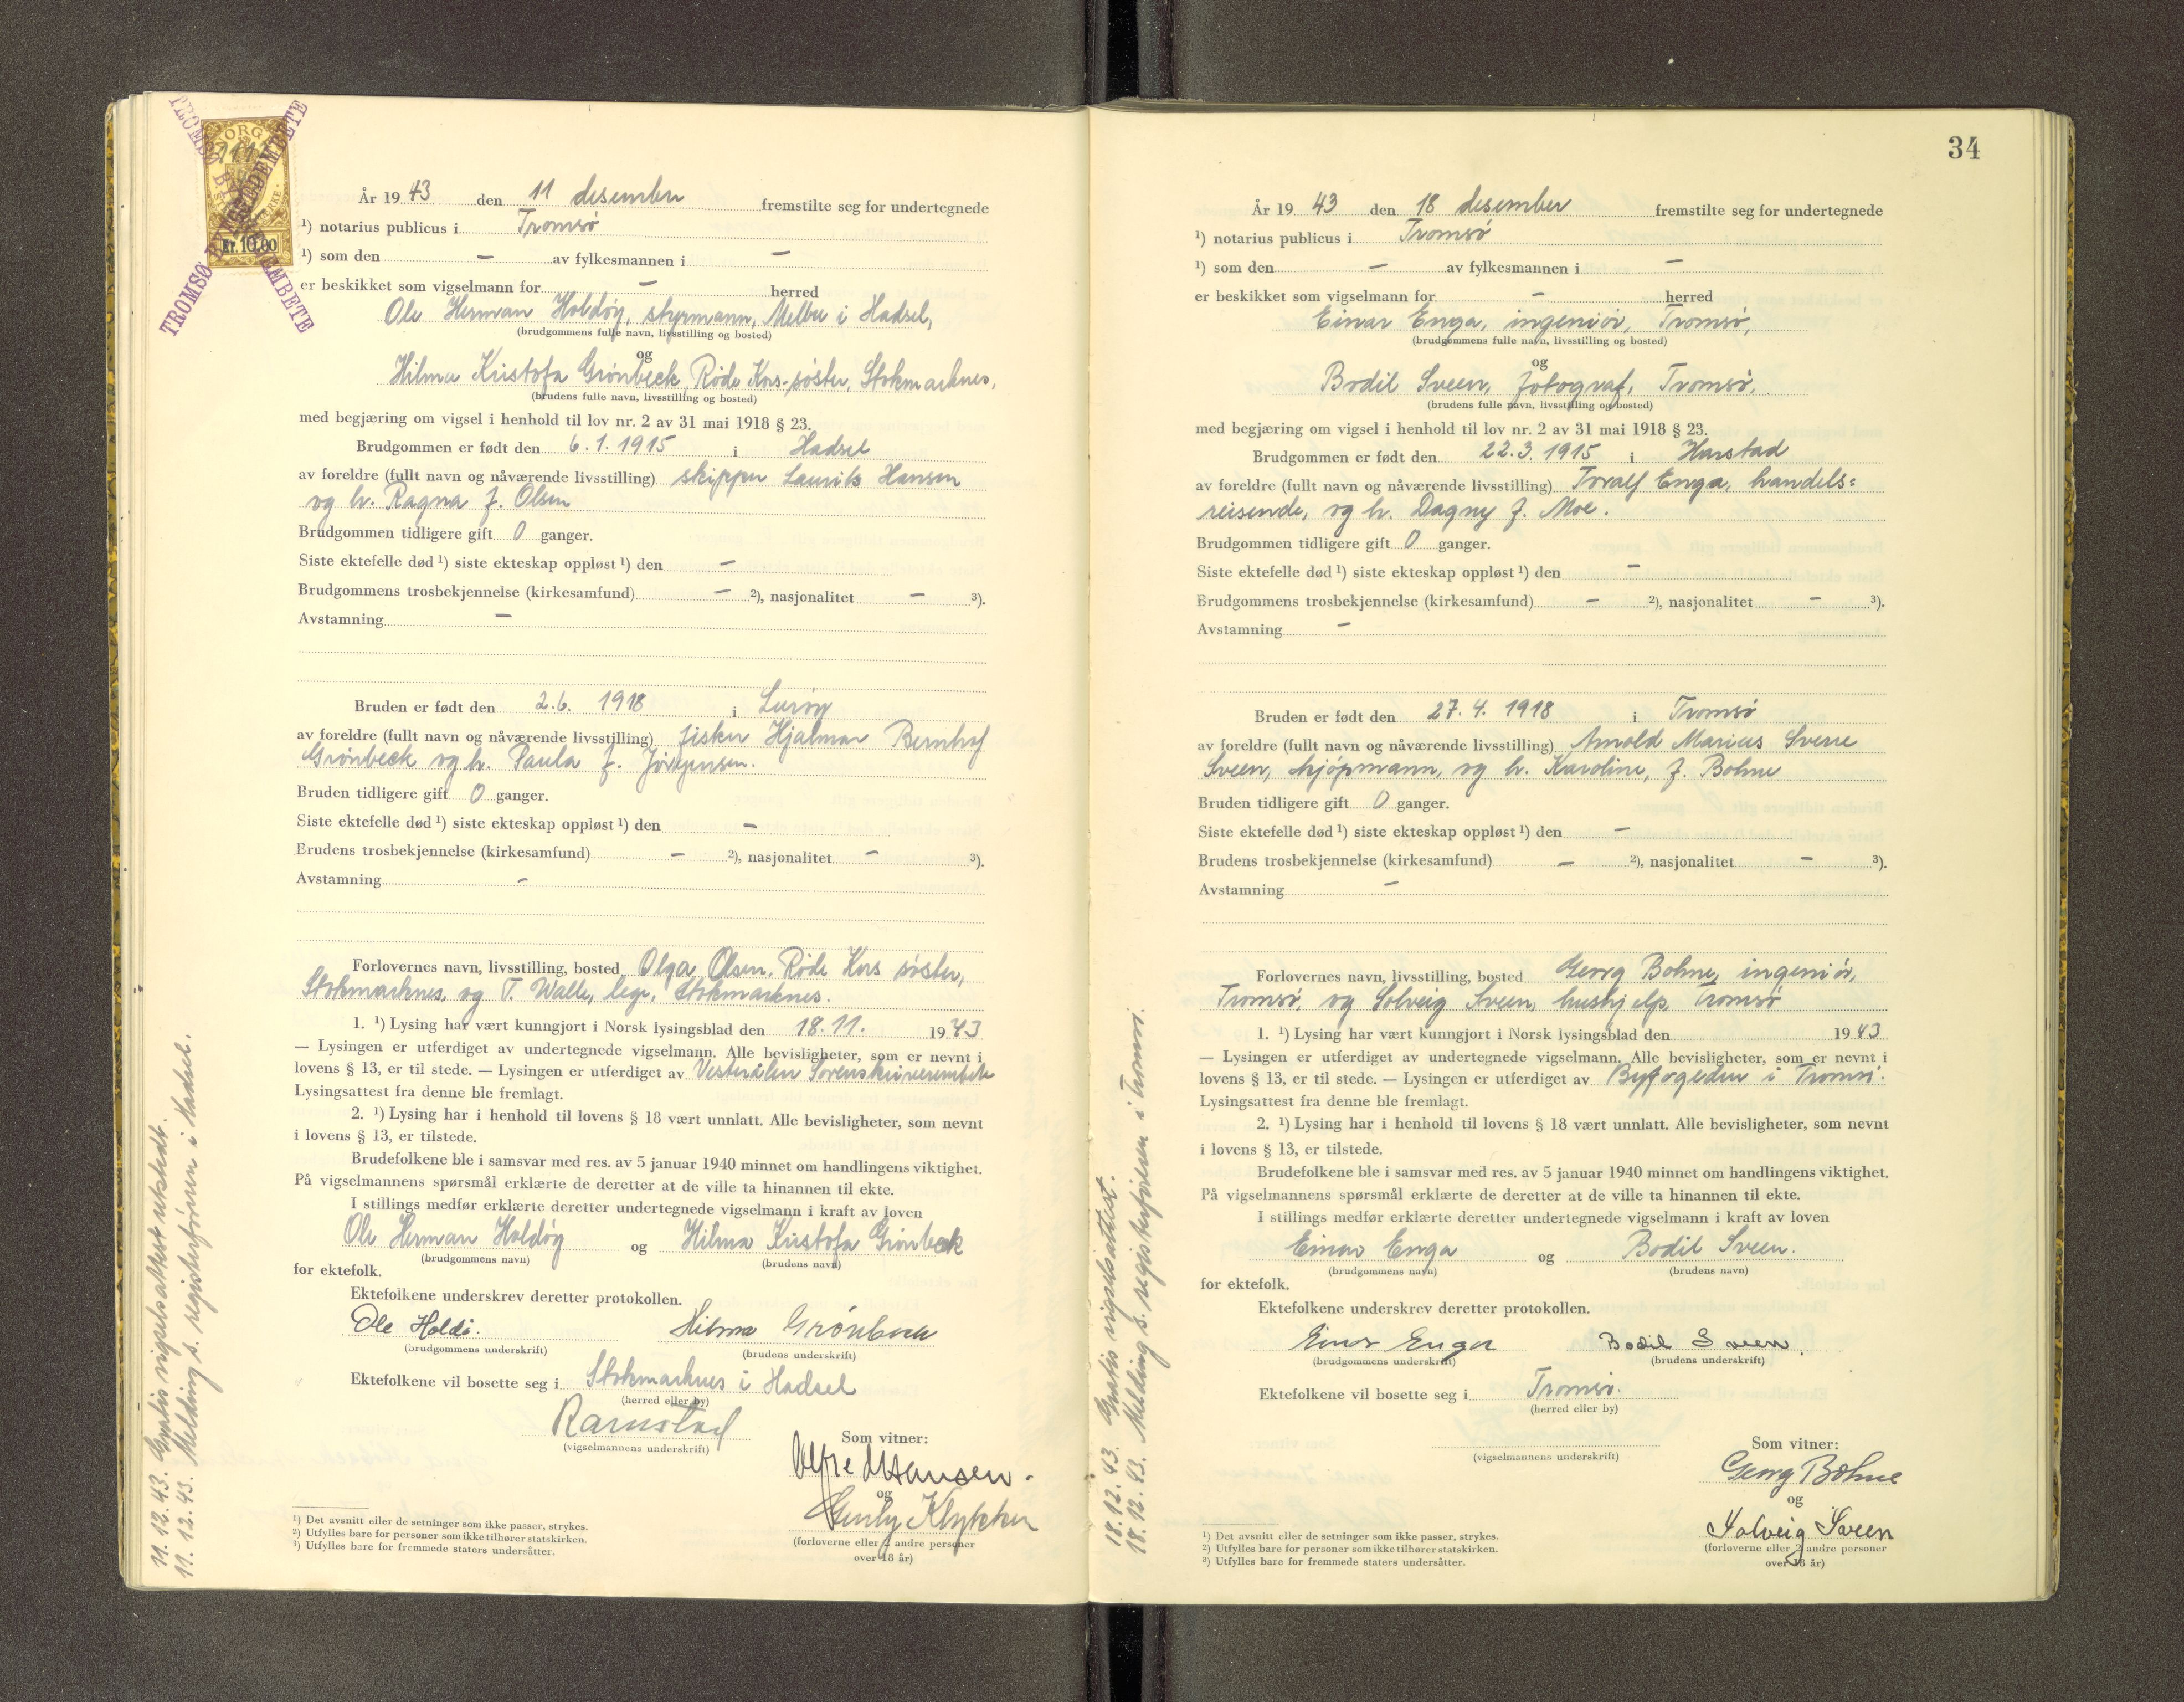 TROMSØ BYFOGEDEMBETE
NORGE
Kr. 10.00
År 1943 den 11 desember fremstilte seg for undertegnede
¹) notarius publicus i Tromsø
¹) som den – av fylkesmannen i –
er beskikket som vigselmann for – herred
Ole Herman Holdøy, styrmann, Melbu i Hadsel,
(brudgommens fulle navn, livsstilling og bosted)
og
Hilma Kristofa Grønbeck, Røde Kors-søster, Stokmarknes,
(brudens fulle navn, livsstilling og bosted)
med begjæring om vigsel i henhold til lov nr. 2 av 31 mai 1918 § 23.
Brudgommen er født den 6.1.1915 i Hadsel
av foreldre (fullt navn og nåværende livsstilling) skipper Laurits Hansen
og h. Ragna f. Olsen
Brudgommen tidligere gift 0 ganger.
Siste ektefelle død ¹) siste ekteskap oppløst ¹) den –
Brudgommens trosbekjennelse (kirkesamfund) – ²), nasjonalitet – ³).
Avstamning –
Bruden er født den 2.6. 1918 i Lurøy
av foreldre (fullt navn og nåværende livsstilling) fisker Hjalmar Bernhof
Grønbeck og h. Paula f. Jørgensen.
Bruden tidligere gift 0 ganger.
Siste ektefelle død ¹) siste ekteskap oppløst ¹) den –
Brudens trosbekjennelse (kirkesamfund) – ²), nasjonalitet – ³).
Avstamning –
Forlovernes navn, livsstilling, bosted Olga Olsen, Røde Kors søster,
Stokmarknes, og T. Walle, lege, Stokmarknes.
1. ¹) Lysing har vært kunngjort i Norsk lysingsblad den 18.11. 1943
— Lysingen er utferdiget av undertegnede vigselmann. Alle bevisligheter, som er nevnt i
lovens § 13, er til stede. — Lysingen er utferdiget av Vesterålen Sorenskriverembete
Lysingsattest fra denne ble fremlagt.
2. ¹) Lysing har i henhold til lovens § 18 vært unnlatt. Alle bevisligheter, som nevnt
i lovens § 13, er tilstede.
Brudefolkene ble i samsvar med res. av 5 januar 1940 minnet om handlingens viktighet.
På vigselmannens spørsmål erklærte de deretter at de ville ta hinannen til ekte.
I stillings medfør erklærte deretter undertegnede vigselmann i kraft av loven
Ole Herman Holdøy og Hilma Kristofa Grønbeck
(brudgommens navn) (brudens navn)
for ektefolk.
Ektefolkene underskrev deretter protokollen.
Ole Holdø. Hilma Grønbeck
(brudgommens underskrift) (brudens underskrift)
Ektefolkene vil bosette seg i Stokmarknes i Hadsel
(herred eller by)
Ramstad
(vigselmannens underskrift)
Som vitner:
Alfred Hansen.
og
Emily Klykken
(forloverne eller 2 andre personer
over 18 år)
¹) Det avsnitt eller de setninger som ikke passer, strykes.
²) Utfylles bare for personer som ikke tilhører statskirken.
³) Utfylles bare for fremmede staters undersåtter.
11.12.43. Gratis vigselsattest utstedt.
11.12.43. Melding s. registerføreren i Hadsel.
34
År 1943 den 18 desember fremstilte seg for undertegnede
¹) notarius publicus i Tromsø
¹) som den – av fylkesmannen i –
er beskikket som vigselmann for – herred
Einar Enga, ingeniør, Tromsø,
(brudgommens fulle navn, livsstilling og bosted)
og
Bodil Sveen, fotograf, Tromsø,
(brudens fulle navn, livsstilling og bosted)
med begjæring om vigsel i henhold til lov nr. 2 av 31 mai 1918 § 23.
Brudgommen er født den 22.3.1915 i Harstad
av foreldre (fullt navn og nåværende livsstilling) Toralf Enga, handels=
reisende, og h. Dagny f. Moe.
Brudgommen tidligere gift 0 ganger.
Siste ektefelle død ¹) siste ekteskap oppløst ¹) den –
Brudgommens trosbekjennelse (kirkesamfund) – ²), nasjonalitet – ³).
Avstamning –
Bruden er født den 27.4.1918 i Tromsø
av foreldre (fullt navn og nåværende livsstilling) Arnold Marius Sverre
Sveen, kjøpmann, og h. Karoline, f. Bohne
Bruden tidligere gift 0 ganger.
Siste ektefelle død ¹) siste ekteskap oppløst ¹) den –
Brudens trosbekjennelse (kirkesamfund) – ²), nasjonalitet – ³).
Avstamning –
Forlovernes navn, livsstilling, bosted Georg Bohne, ingeniør,
Tromsø, og Solveig Sveen, hushjelp, Tromsø
1. ¹) Lysing har vært kunngjort i Norsk lysingsblad den 1943
— Lysingen er utferdiget av undertegnede vigselmann. Alle bevisligheter, som er nevnt i
lovens § 13, er til stede. — Lysingen er utferdiget av Byfogeden i Tromsø.
Lysingsattest fra denne ble fremlagt.
2. ¹) Lysing har i henhold til lovens § 18 vært unnlatt. Alle bevisligheter, som nevnt
i lovens § 13, er tilstede.
Brudefolkene ble i samsvar med res. av 5 januar 1940 minnet om handlingens viktighet.
På vigselmannens spørsmål erklærte de deretter at de ville ta hinannen til ekte.
I stillings medfør erklærte deretter undertegnede vigselmann i kraft av loven
Einar Enga og Bodil Sveen.
(brudgommens navn) (brudens navn)
for ektefolk.
Ektefolkene underskrev deretter protokollen.
Einar Enga Bodil Sveen.
(brudgommens underskrift) (brudens underskrift)
Ektefolkene vil bosette seg i Tromsø.
(herred eller by)
(vigselmannens underskrift)
Som vitner:
Georg Bohne
og
Solveig Sveen
(forloverne eller 2 andre personer
over 18 år)
¹) Det avsnitt eller de setninger som ikke passer, strykes.
²) Utfylles bare for personer som ikke tilhører statskirken.
³) Utfylles bare for fremmede staters undersåtter.
18.12.43. Gratis vigselsattest.
18.12.43. Melding s. registerføreren i Tromsø.